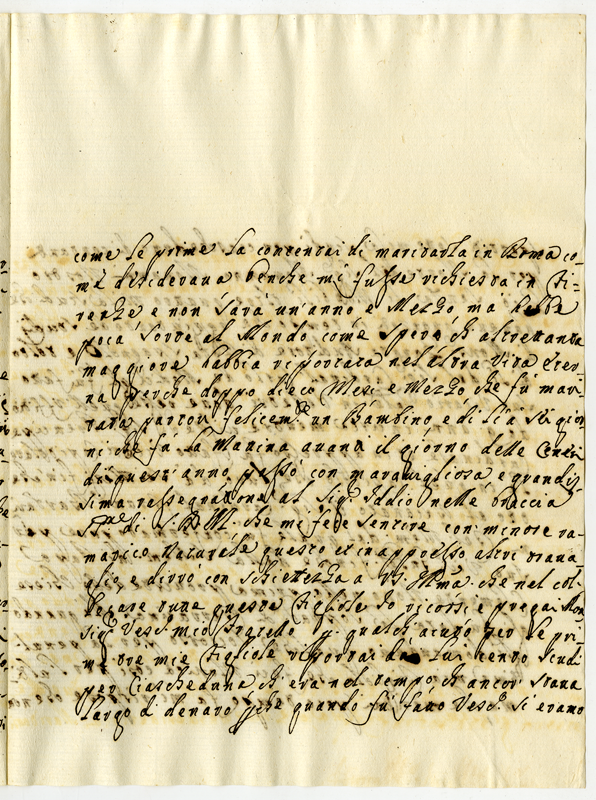 come le prime la contentai di maritarla in Roma co-
me desiderava benche mi fusse richiesta in Fi-
renze e non sarà un'anno e Mezzo, mà hebbe
poca sorte al Mondo come spero ch altrettanta
maggiore habbia riportata nell'altra Vita Eter-
na perche doppo dieci Mesi e Mezzo che fu mari-
tata partorì felicem.te un Bambino, e di lì a sei gior
ni che fú la Matina avanti il giorno delle Ceneri
di quest'anno passò con maravigliosa e grandis-
sima rassegnatione al Sig.r Iddio nelle braccia
di S. D. M. che mi fece sentire con minore ra-
marico Naturale questo et in appresso altri
e dirrò con schiettezza a VS Ill.ma che nel col-
locare tutte queste Figliole Io ricorsi e pregai Mon
sig.r Vesc.o mio Fratello p qualch aiuto per le pri-
me tre mie Figliole riportai da Lui cento scudi
per Ciascheduna ch era nel tempo ch ancor stava
largo di denaro pche quando fú fatto Vesc.o si erano